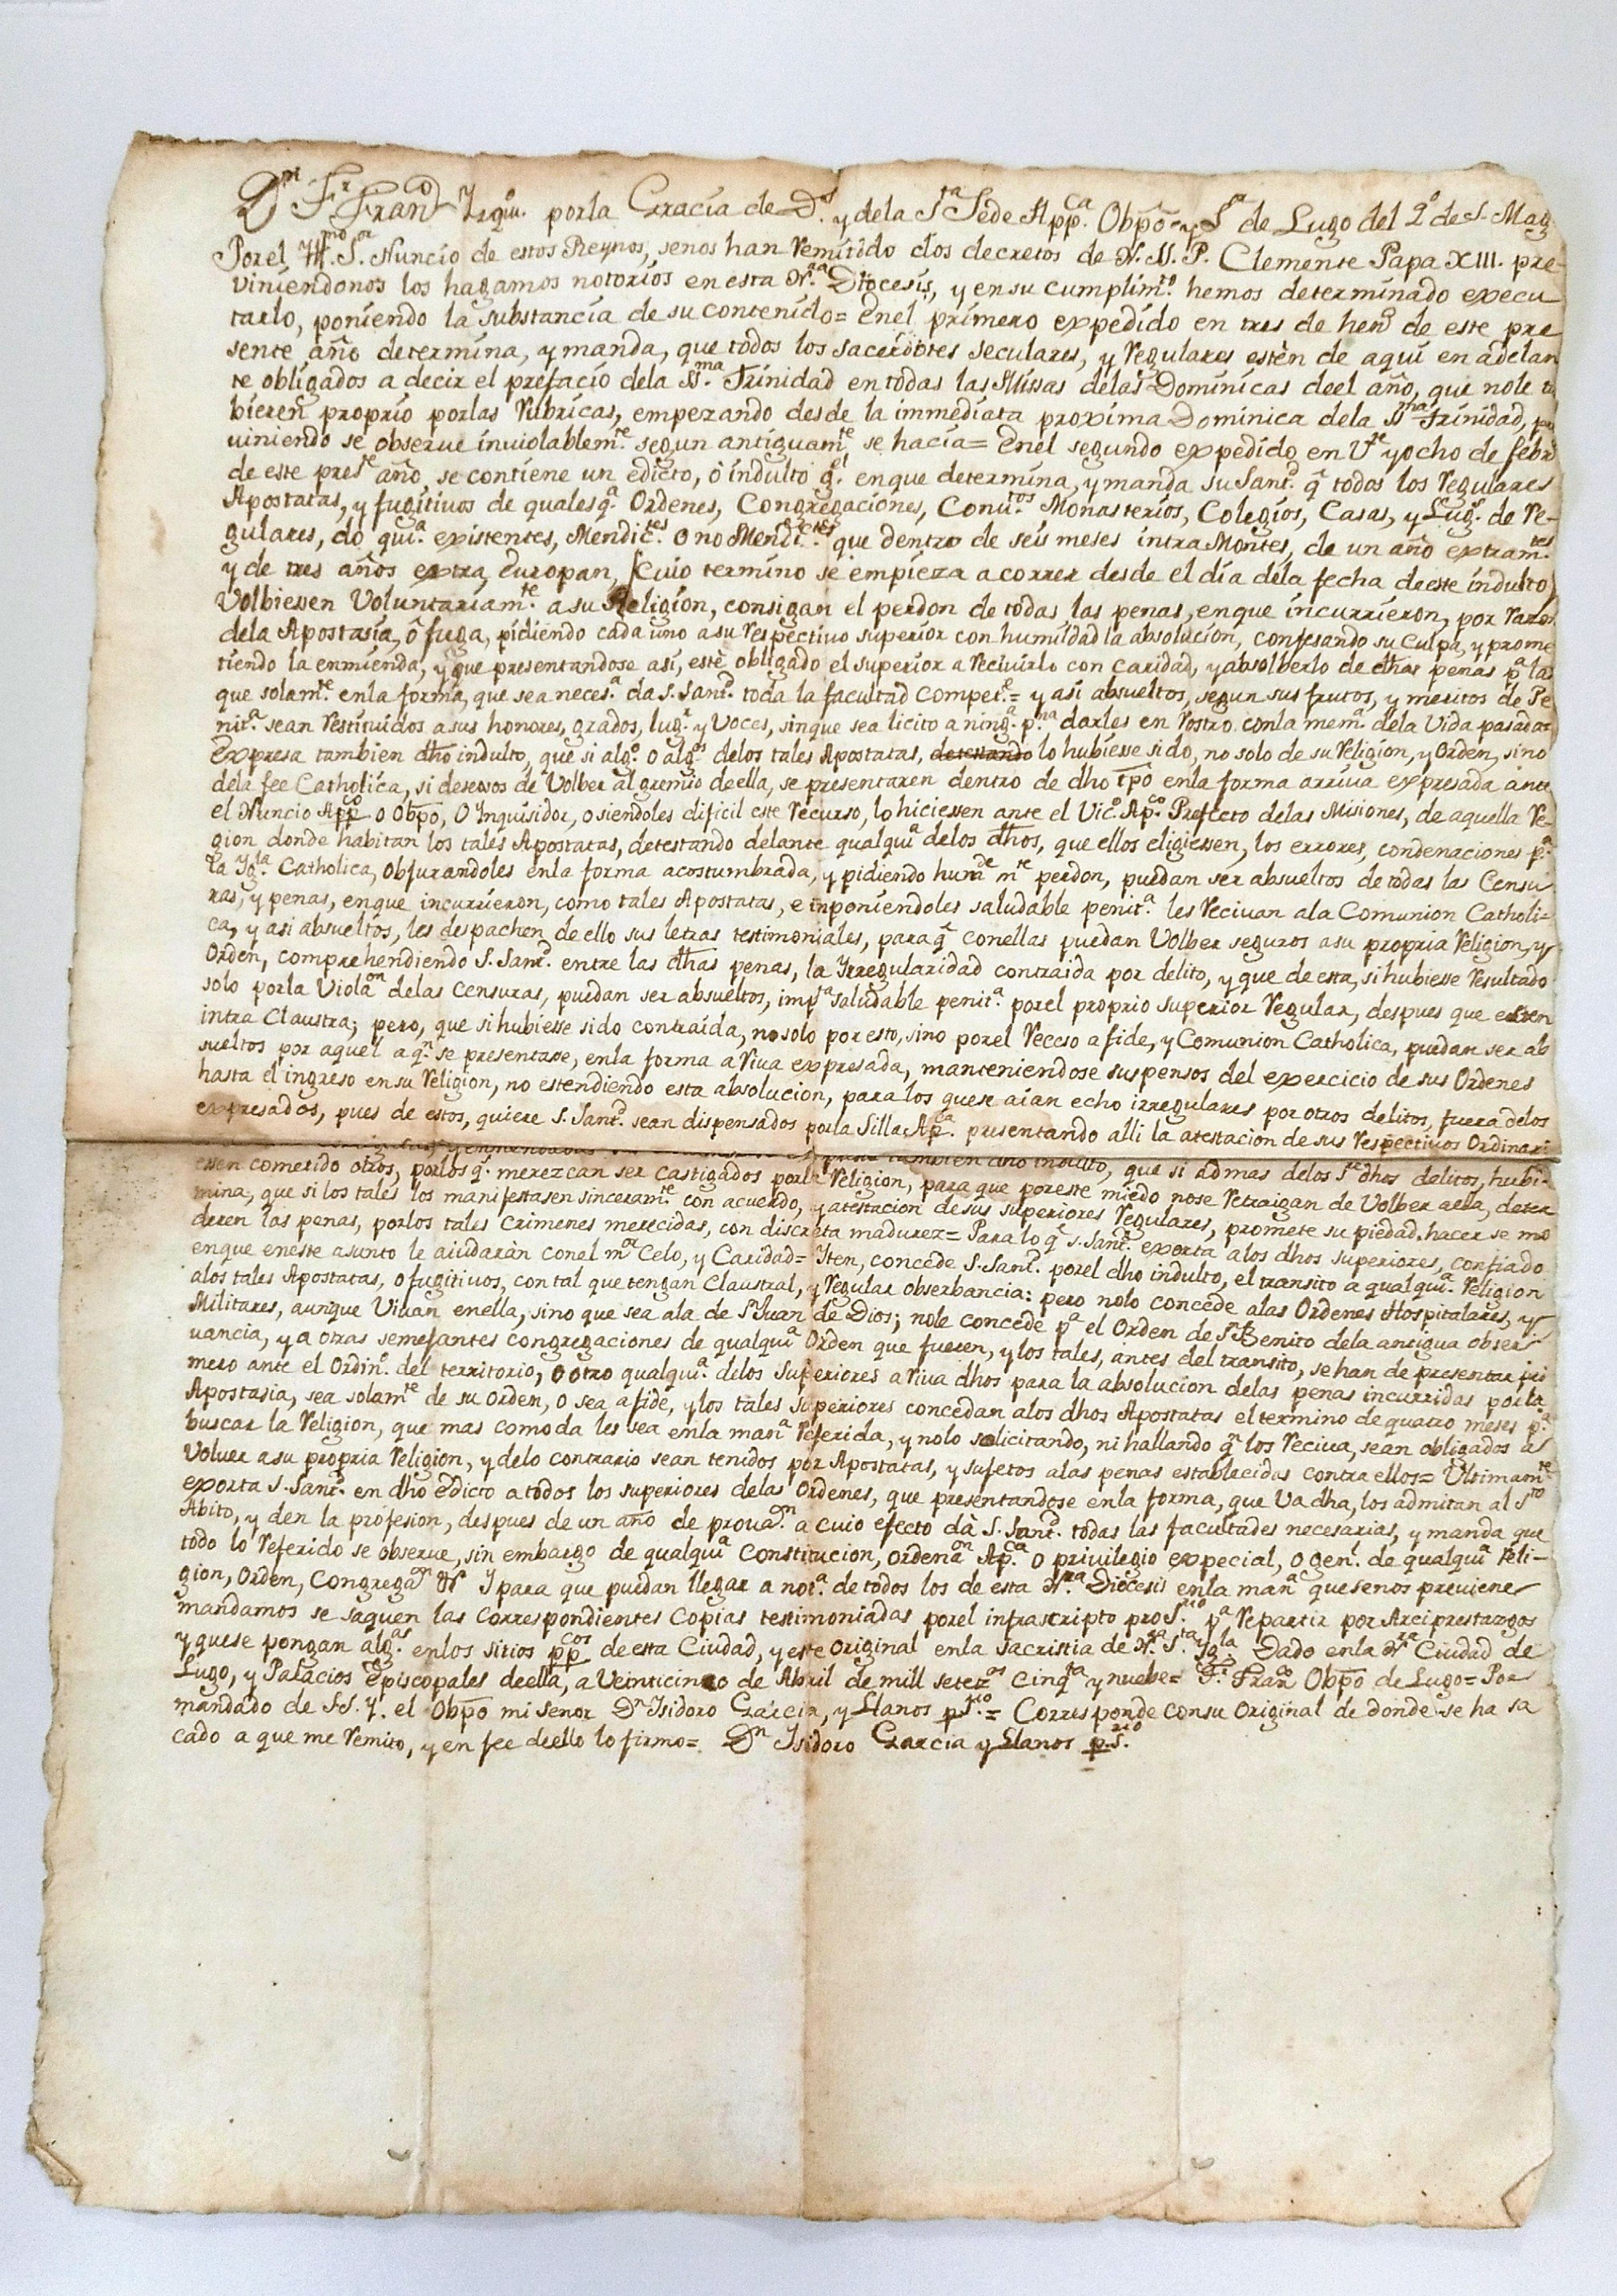 Dn. Fr. Franco Izqu. por la Gracia de Ds. y de la Sta Sede Appca. Obpo y Sr de Lugo del Qo de S. Mag
Por el Illmo. Sr. Nuncio de estos Reynos, se nos han remitido dos decretos de N. SS. P. Clemente Papa XIII. pre-
viniendonos los hagamos notorios en esta Nra. Diocesis, y en su cumplimto. hemos determinado execu
tarlo, poniendo la substancia de su contenido = En el primero expedido en tres de heno de este pre
sente año determina, y manda, que todos los sacerdotes seculares, y Regulares estèn de aqui en adelan
te obligados a decir el prefacio de la SSma. Trinidad en todas las Missas de las Dominicas de el año, que no le tu
bieren proprio por las Rubricas, empezando desde la immediata proxima Dominica de la SSma Trinidad, pre
viniendo se observe inviolablemte. segun antiguamte. se hacia = En el segundo expedido en Vte y ocho de febro
de este preste año, se contiene un edicto, ò indulto gl. en que determina, y manda su Santd. q todos los Regulares
Apostatas, y fugitivos de qualesqa. Ordenes, Congregaciones, Conutos. Monasterios, Colegios, Casas, y Lugs. de Re-
gulares, do quia. existentes, Mendictes. o no Mendictes. que dentro de seis meses intra Montes, de un año extramtes.
y de tres años extra Europan, (cuio termino se empieza a correr desde el dia de la fecha de este indulto)
Volbiessen Voluntariamte. a su Religion, consigan el perdon de todas las penas, en que incurrieron, por razon
de la Apostasia, ô fuga, pidiendo cada uno a su respectivo superior con humildad la absolucion, confesando su culpa, y prome
tiendo la enmienda, y que presentandose asi, estè obligado el superior a recivirlo con caridad, y absolberlo de dhas penas pa la
que solamte. en la forma, que sea necesa. da S. Santd. toda la facultad compete. = y asi absueltos, segun sus frutos, y meritos de Pe
nita. sean restituidos a sus honores, grados, lugr. y voces, sin que sea licito a ninga. pna darles en rostro con la mem. de la vida pasada =
Expresa tambien dho indulto, que si algo. o algs. de los tales Apostatas, detestando lo hubiesse sido, no solo de su Religion, y Orden, sino
de la fee Catholica, si deseosos de Volber al gremio de ella, se presentaren dentro de dho tpo en la forma arriva expresada ante
el Nuncio Appco o Obpo, o Ynquisidor, o siendoles dificil este recurso, lo hiciessen ante el Vico. Apco. Prefecto de las Misiones, de aquella Re-
gion donde habitan los tales Apostatas, detestando delante qualqua de los dhos, que ellos eligiessen, los errores, condenaciones pa.
la Ygla. Catholica, objurandoles en la forma acostumbrada, y pidiendo humde mte perdon, puedan ser absueltos de todas las Censu
ras, y penas, en que incurrieron, como tales Apostatas, e inponiendoles saludable penita. les recivan a la Comunion Catholi=
ca, y asi absueltos, les despachen de ello sus letras testimoniales, para q con ellas puedan Volber seguros a su propria Religion, y
Orden, comprehendiendo S. Santd. entre las dhas penas, la Yrregularidad contraida por delito, y que de esta, si hubiesse resultado
solo por la Violaon de las censuras, puedan ser absueltos, impta saludable penita. por el proprio superior Regular, despues que esten
intra Claustra; pero, que si hubiesse sido contraida, no solo por esto, sino por el receso a fide, y Comunion Catholica, puedan ser ab
sueltos por aquel a qn. se presentare, en la forma a riva expresada, manteniendose suspensos del exercicio de sus Ordenes
hasta el ingreso en su Religion, no estendiendo esta absolucion, para los que se aian echo irregulares por otros delitos, fuera de los
expresados, pues de estos, quiere S. Santd. sean dispensados por la Silla Apca. presentando alli la atestacion de sus respectivos Ordinari
tambien dho indulto, que si admas de los se dhos delitos, hubi-
essen cometido otros, por los q. merezcan ser castigados por la Religion, para que por este miedo no se retraigan de Volber a ella, deter
mina, que si los tales los manifestasen sinceramte. con acuerdo, y atestacion de sus superiores Regulares, promete su piedad, hacer se mo
deren las penas, por los tales crimenes merecidas, con discreta madurez = Para lo q S. Santd. exorta a los dhos superiores, confiado
en que en este asunto le aiudaràn con el mor Celo, y Caridad = Yten, concede S. Santd. por el dho indulto, el transito a qualquia. Religion
a los tales Apostatas, o fugitivos, con tal que tengan Claustral, y Regular obserbancia: pero no lo concede a las Ordenes Hospitalares, y
Militares, aunque Vivan en ella, sino que sea a la de Sn Juan de Dios; no le concede pa el Orden de Sn Benito de la antigua obser
vancia, y a otras semejantes congregaciones de qualqua Orden que fueren, y los tales, antes del transito, se han de presentar pri
mero ante el Ordino. del territorio, o otro qualquia. de los Superiores a riva dhos para la absolucion de las penas incurridas por la
Apostasia, sea solamte de su Orden, o sea a fide, y los tales superiores concedan a los dhos Apostatas el termino de quatro meses pa
buscar la Religion, que mas comoda les sea en la mana referida, y no lo solicitando, ni hallando qn los reciva, sean obligados a
Volver a su propria Religion, y de lo contrario sean tenidos por Apostatas, y sujetos a las penas establecidas contra ellos = Ultimamte
exorta S. Santd. en dho Edicto a todos los superiores de las Ordenes, que presentandose en la forma, que va dha, los admitan al Sto
Abito, y den la profesion, despues de un año de provaon. a cuio efecto dà S. Santd. todas las facultades necesarias, y manda que
todo lo referido se observe, sin embargo de qualqua Constitucion, Ordenaon Apca. o privilegio expecial, o genl. de qualqua Reli-
gion, Orden, Congregaon &a Y para que puedan llegar a nota. de todos los de esta Nra Diocesis en la mana que se nos previene
mandamos se saquen las correspondientes copias testimoniadas por el infrascripto pro Srio. pa repartir por Arciprestazgos
y que se pongan algas. en los sitios ppcos de esta Ciudad, y este Original en la sacristia de Nra. Sta Ygla Dado en la Nra Ciudad de
Lugo, y Palacios Episcopales de ella, a Veinticinco de Abril de mill setezos cinqta y nuebe = Fr. Franco Obpo de Lugo = Por
mandado de SS. Y. el Obpo mi Señor Dn Isidoro Garcia, y Llanos pSrio. = Corresponde con su Original de donde se ha sa
cado a que me remito, y en fee de ello lo firmo = Dn Isidoro Garcia y Llanos pSrio.